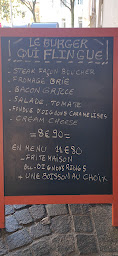 LE BURGER
QUI FLINGUE!
- STEAK FAÇON BOUCHER
- FROMAGE BRIE
- BACON GRILLÉ
- SALADE, TOMATE
- FONDUE D'OIGNONS CARAMELISES
- CREAM CHEESE
= 8€90 =
EN MENU 11€80
- FRITE MAISON
ou OIGNONS RINGS
+ UNE BOISSON AU CHOIX